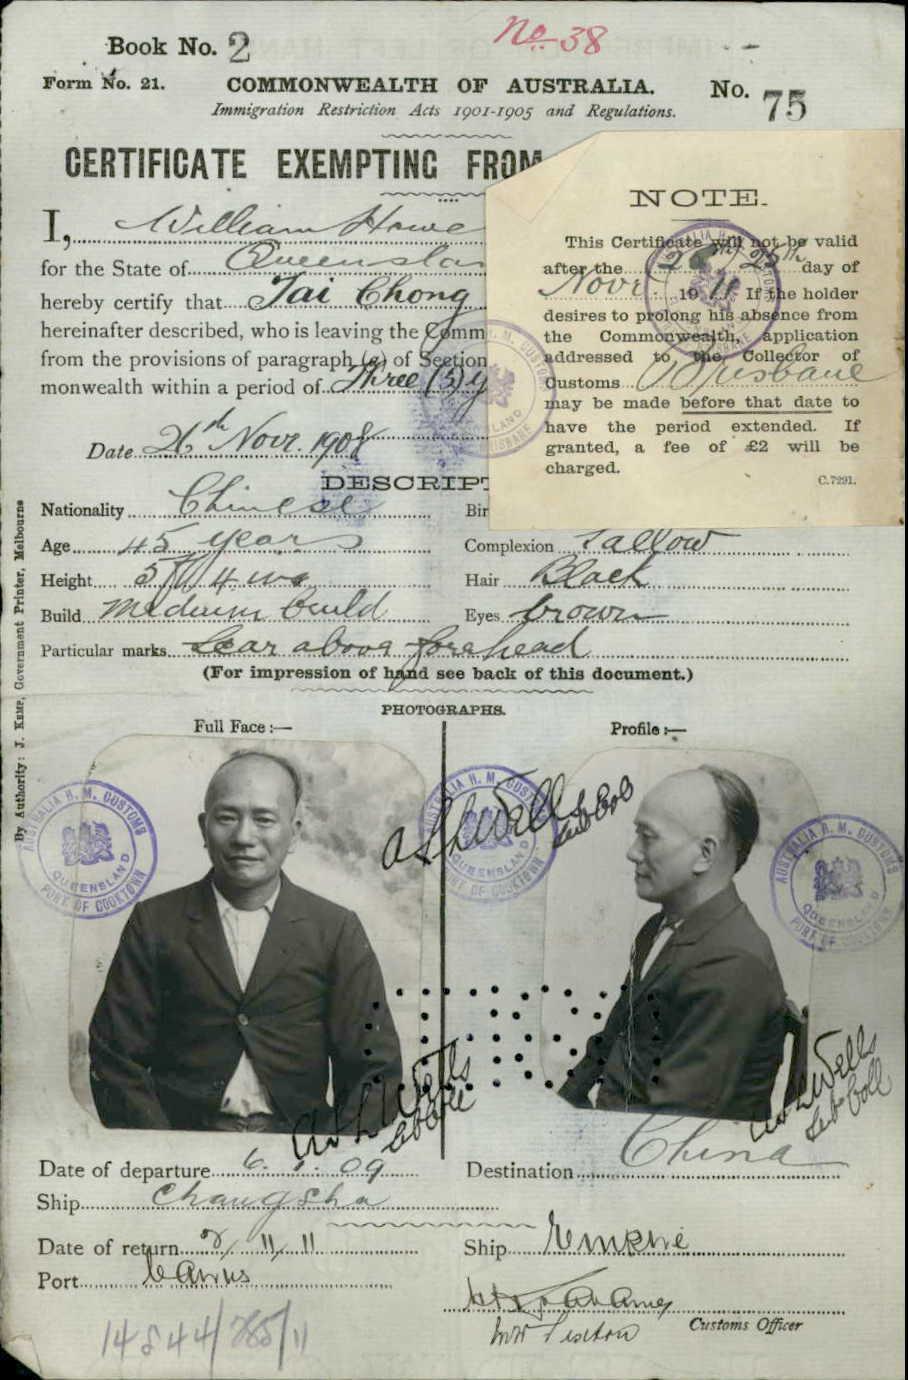 Book No. 2
No. 38
Form No. 21.
COMMONWEALTH OF AUSTRALIA.
No. 75
Immigration Restriction Acts 1901-1905 and Regulations.
CERTIFICATE EXEMPTING FROM
I, William Howe
for the State of Queensla
hereby certify that Tai Chong
hereinafter described, who is leaving the Comm
from the provisions of paragraph (a) of Section
monwealth within a period of Three (3) y
Date 26th Novr. 1908
NOTE.
This Certificate will not be valid
after the 25th day of
Novr 1911. If the holder
desires to prolong his absence from
the Commonwealth, application
addressed to the Collector of
Customs Brisbane
may be made before that date to
have the period extended. If
granted, a fee of £2 will be
charged.
C.7291.
DESCRIPT
Nationality Chinese
Bir
Age 45 years
Complexion Sallow
Height 5ft 4 ins
Hair Black
Build Medium build
Eyes brown
Particular marks Scar above forehead
(For impression of hand see back of this document.)
PHOTOGRAPHS.
Full Face :—
Profile :—
By Authority: J. KEMP, Government Printer, Melbourne
AUSTRALIA H. M. CUSTOMS
QUEENSLAND
PORT OF COOKTOWN
AUSTRALIA H. M. CUSTOMS
QUEENSLAND
PORT OF COOKTOWN
AUSTRALIA H. M. CUSTOMS
QUEENSLAND
PORT OF COOKTOWN
Wells
Sub Col
Wells
Wells
Sub Coll
Date of departure 6. 1. 09
Destination China
Ship Changsha
Date of return 2/11/11
Ship Empire
Port Cairns
Customs Officer